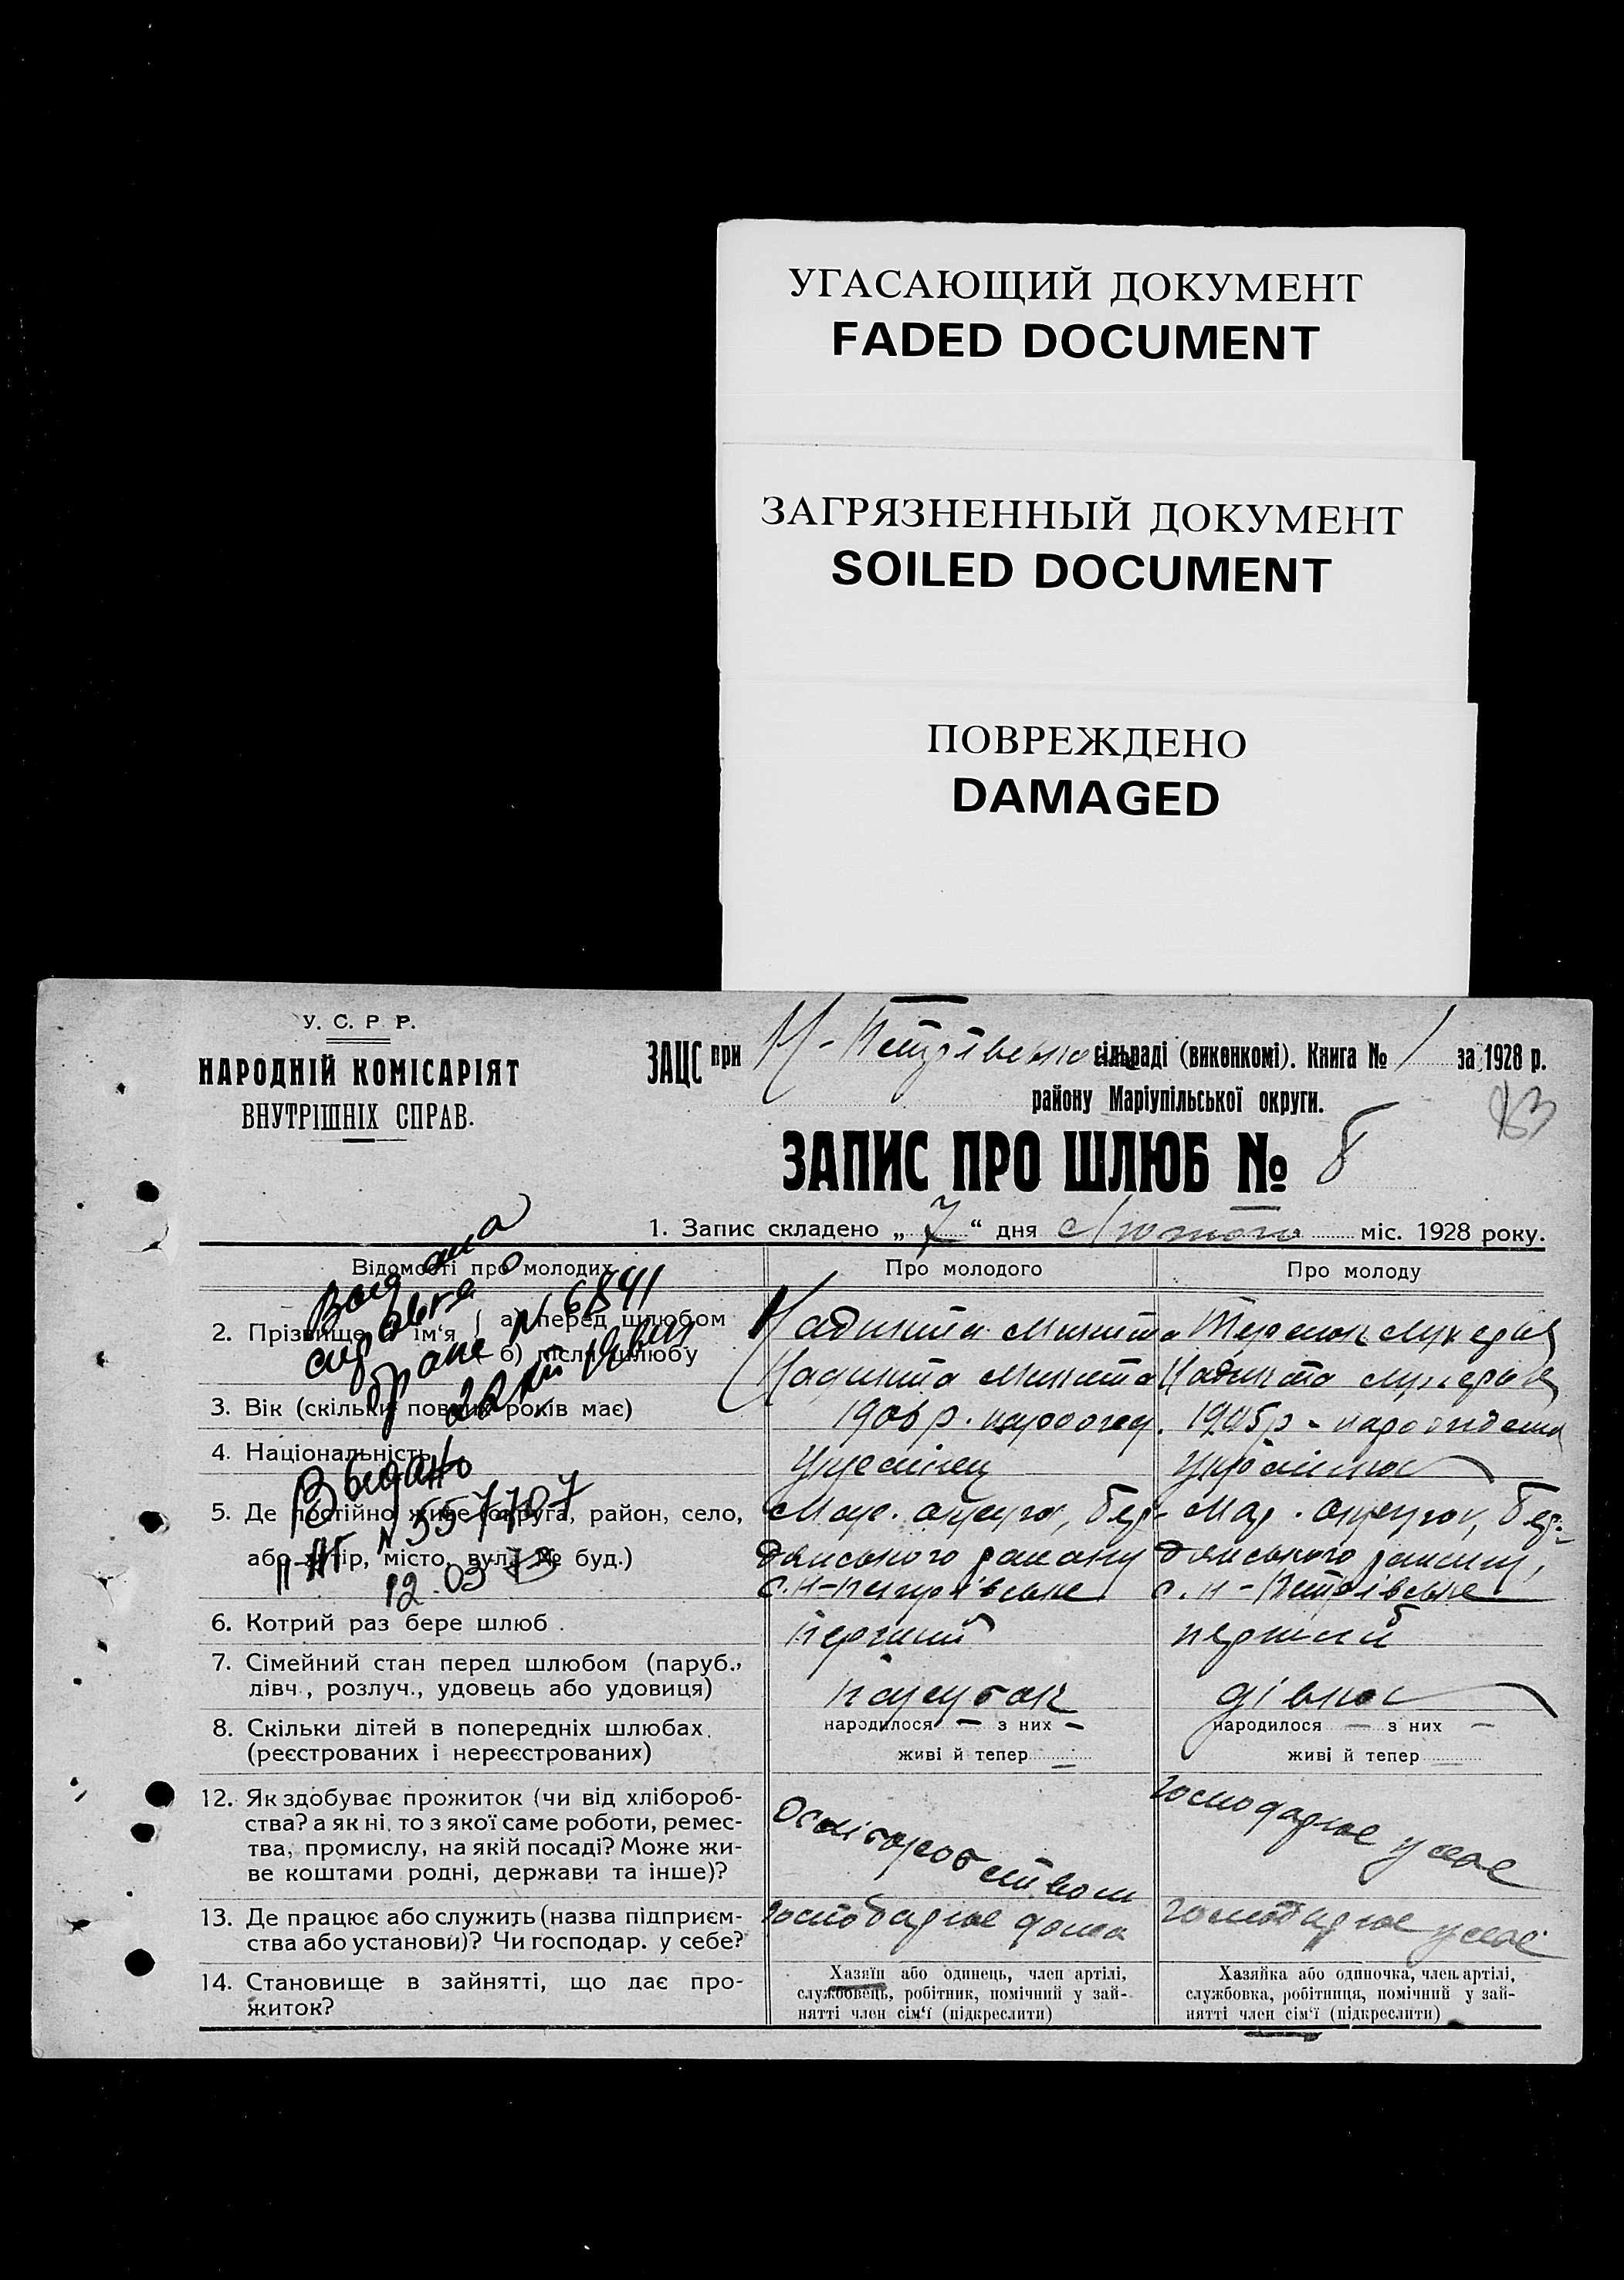 УГАСАЮЩИЙ ДОКУМЕНТ
FADED DOCUMENT
ЗАГРЯЗНЕННЫЙ ДОКУМЕНТ
SOILED DOCUMENT
ПОВРЕЖДЕНО
DAMAGED
У. С. Р Р.
НАРОДНІЙ КОМІСАРІЯТ
ВНУТРІШНІХ СПРАВ.
ЗАЦС при Н-Петрівською сільраді (виконкомі). Книга № 1 за 1928 р.
району Маріупільської округи.
83
ЗАПИС ПРО ШЛЮБ № 8
1. Запис складено „ 7 “ дня Лютого міс. 1928 року.
Відомості про молодих
Про молодого
Про молоду
2. Прізвище й ім'я { а) перед шлюбом
б) після шлюбу
Микита
Микита
3. Вік (скільки повних років має)
1906 р. народжен.
1905 р - народидена
4. Національність
Українец
Українка
5. Де постійно живе (округа, район, село,
або хутір, місто, вул., № буд.)
Мар. округа, Бер-
дянського району
с. Н-Петрівське
Мар. округа, Бер-
дянського району,
с. Н-Петрівське
№ 6841
Выдано
№ 557707
12.03.73
6. Котрий раз бере шлюб .
перший
перший
7. Сімейний стан перед шлюбом (паруб.,
дівч., розлуч., удовець або удовиця)
парубок
дівка
8. Скільки дітей в попередніх шлюбах.
(реєстрованих і нереєстрованих)
народилося – з них –
живі й тепер –
народилося – з них –
живі й тепер
12. Як здобуває прожиток (чи від хлібороб-
ства? а як ні, то з якої саме роботи, ремес-
тва, промислу, на якій посаді? Може жи-
ве коштами родні, держави та інше)?
господарює у себе
13. Де працює або служить (назва підприєм-
ства або установи)? Чи господар. у себе?
господарює дома
господарює у себе
14. Становище в зайнятті, що дає про-
житок?
Хазяїн або одинець, член артілі,
службовець, робітник, помічний у зай-
нятті член сім'ї (підкреслити)
Хазяйка або одиночка, член артілі,
службовка, робітниця, помічний у зай-
нятті член сім'ї (підкреслити)